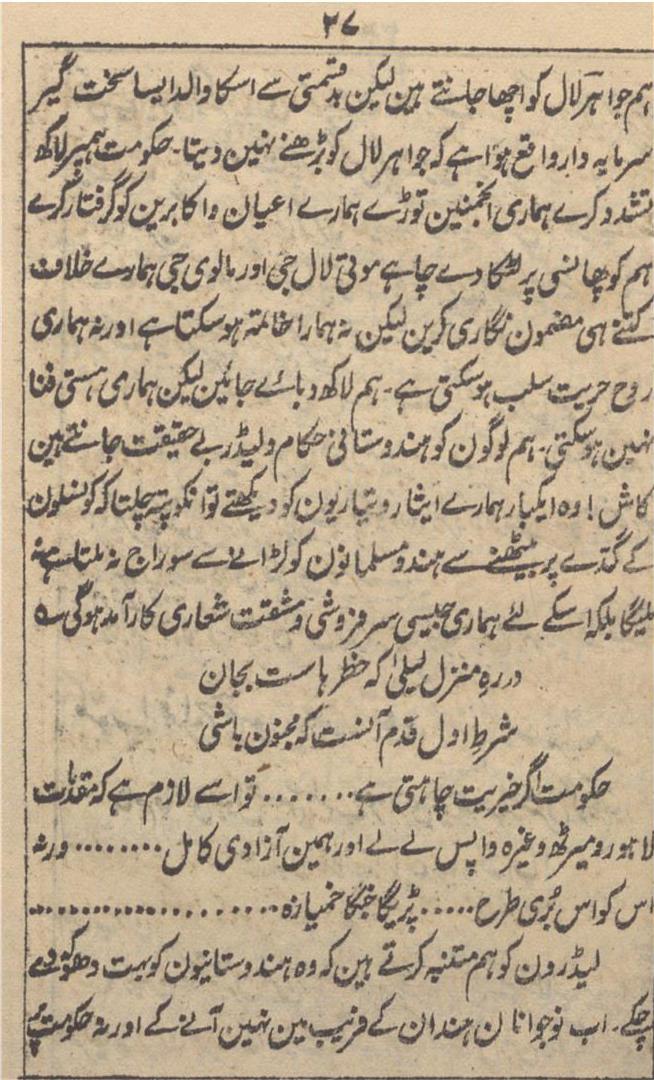 ۲۷
ہم جواہر لال کو اچھا جانتے ہین لیکن بدقسمتی سے اسکا والد ایسا سخت گیر
سرمایہ دار واقع ہوا ہے کہ جواہر لال کو بڑھنے نہین دیتا۔ حکومت ہمپر لاکھ
تشدد کرے ہماری انجمنین توڑے ہمارے اعیان و اکابرین کو گرفتار کرے
ہم کو پھانسی پر لٹکا دے چاہے موتی لال جی اور مالوی جی ہمارے خلاف
کتنے ہی مضمون نگاری کرین لیکن نہ ہمارا خاتمہ ہوسکتا ہے اور نہ ہماری
روح حریت سلب ہوسکتی ہے۔ ہم لاکھ دبائے جائین لیکن ہماری ہستی فنا
نہین ہوسکتی۔ ہم لوگون کو ہندوستانی حکام و لیڈر بے حقیقت جانتے ہین
کاش! وہ ایکبار ہمارے ایثار و تیاریون کو دیکھتے تو انکو پتہ چلتا کہ کونسلون
کے گدے پر بیٹھنے سے ہندو مسلمانون کو لڑانے سے سوراج نہ ملتا ہے نہ
ملیگا بلکہ اسکے لئے ہماری جیسی سرفروشی و مشقت شعاری کارآمد ہوگی ؎
در رہِ منزل لیلیٰ کہ خطرہاست بجان
شرطِ اول قدم آنست کہ مجنون باشی
حکومت اگر خیریت چاہتی ہے ....... تو اسے لازم ہے کہ مقدمات
لاہور و میرٹھ وغیرہ واپس لے لے اور ہمین آزادی کامل ........ ورنہ
اس کو اس بُری طرح ..... پڑیگا جنکا خمیازہ ......................
لیڈرون کو ہم متنبہ کرتے ہین کہ وہ ہندوستانیون کو بہت دھوکے دے
چکے۔ اب نوجوانان ہند ان کے فریب مین نہین آنے کے اور نہ حکومت